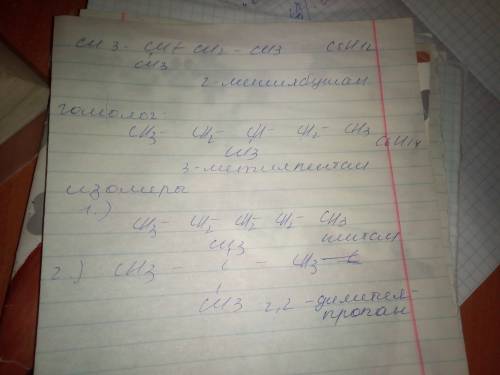 CH3 - CH - CH2 - CH3 C5H12
CH3
2-метилбутан
гомолог
CH3 - CH2 - CH - CH2 - CH3 C6H14
CH3
3-метилпентан
изомеры
1.)
CH3 - CH2 - CH2 - CH2 - CH3
CH3 пентан
2.) CH3 - C - CH3
CH3 2,2-диметил-
пропан